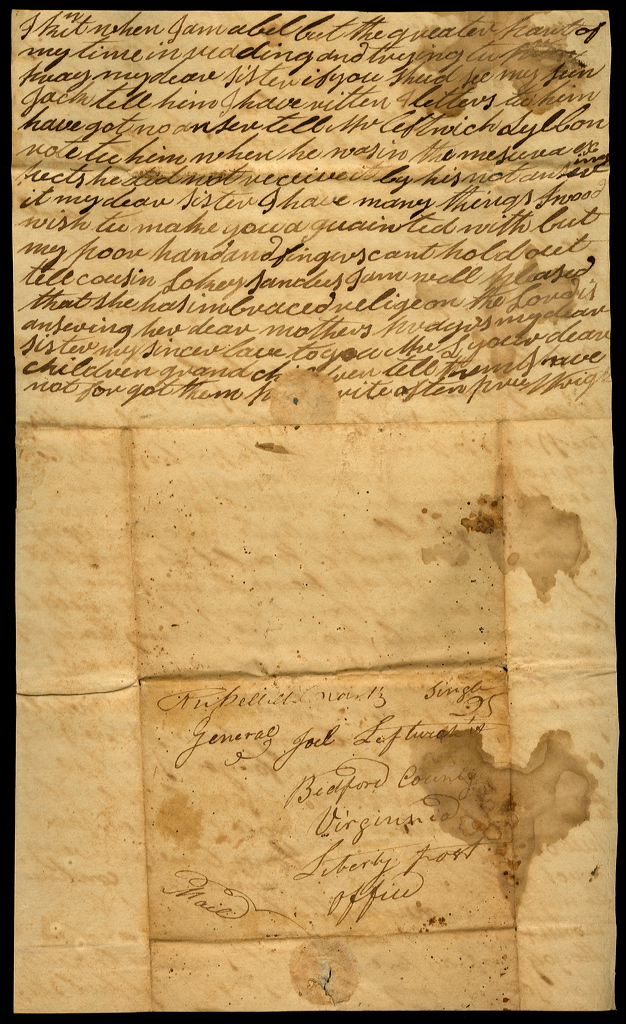 I knit when I am abel but the greater part of
my time in reding and trying to
pray my deare sister if you shud se my son
Jack tell him I have ritten 4 letters to him
have got no anser tell Mr Leftwich Lyl Con
rote to him when he was in the
he did not receive it by his not ansering
it my dear sister I have many things I wood
wish to make you a quainted with but
my poor hand and fingers cant hold out
tell cousin Lokey Sanders I am well pleased
that she has imbraced religeon the Lord is
ansering her dear mothers prayers my dear
sister my sincer love to you Mr L your deare
children grand children tell them I have
not for got them rite often
Nov. 13 Single
25
General Joel Leftwich
Bedford County
Virginia
Liberty post
office
Mail